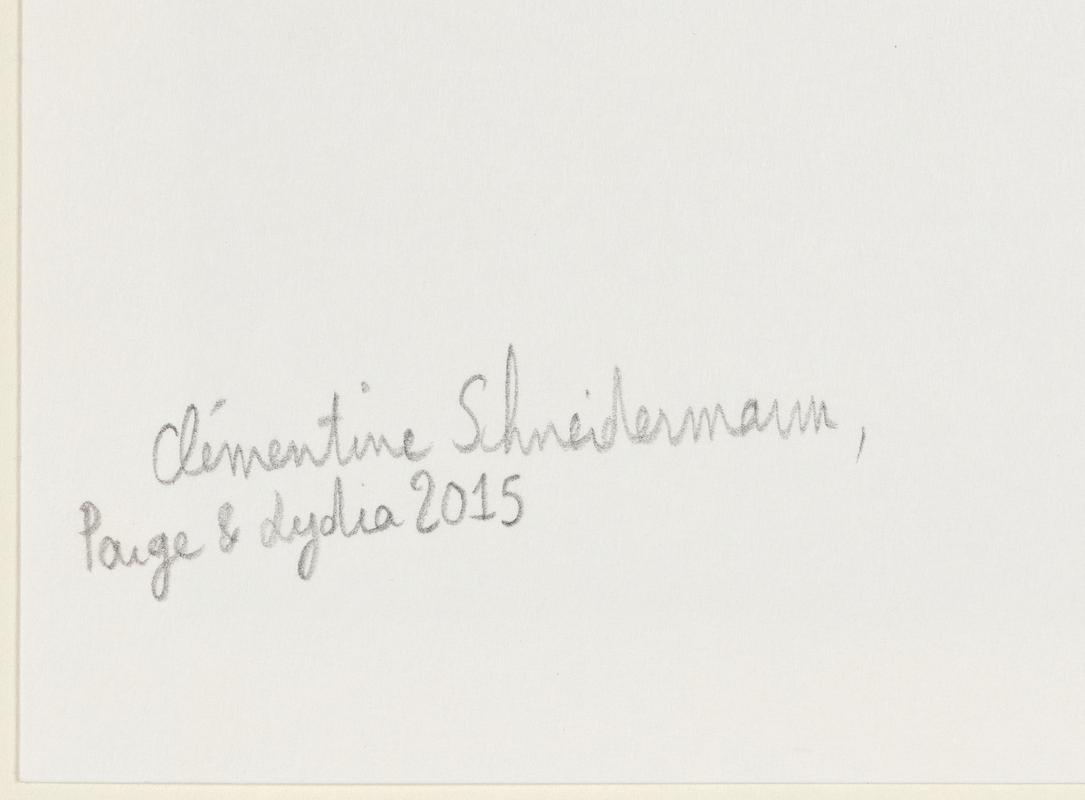 Clémentine Schneidermann,
Paige & Lydia 2015